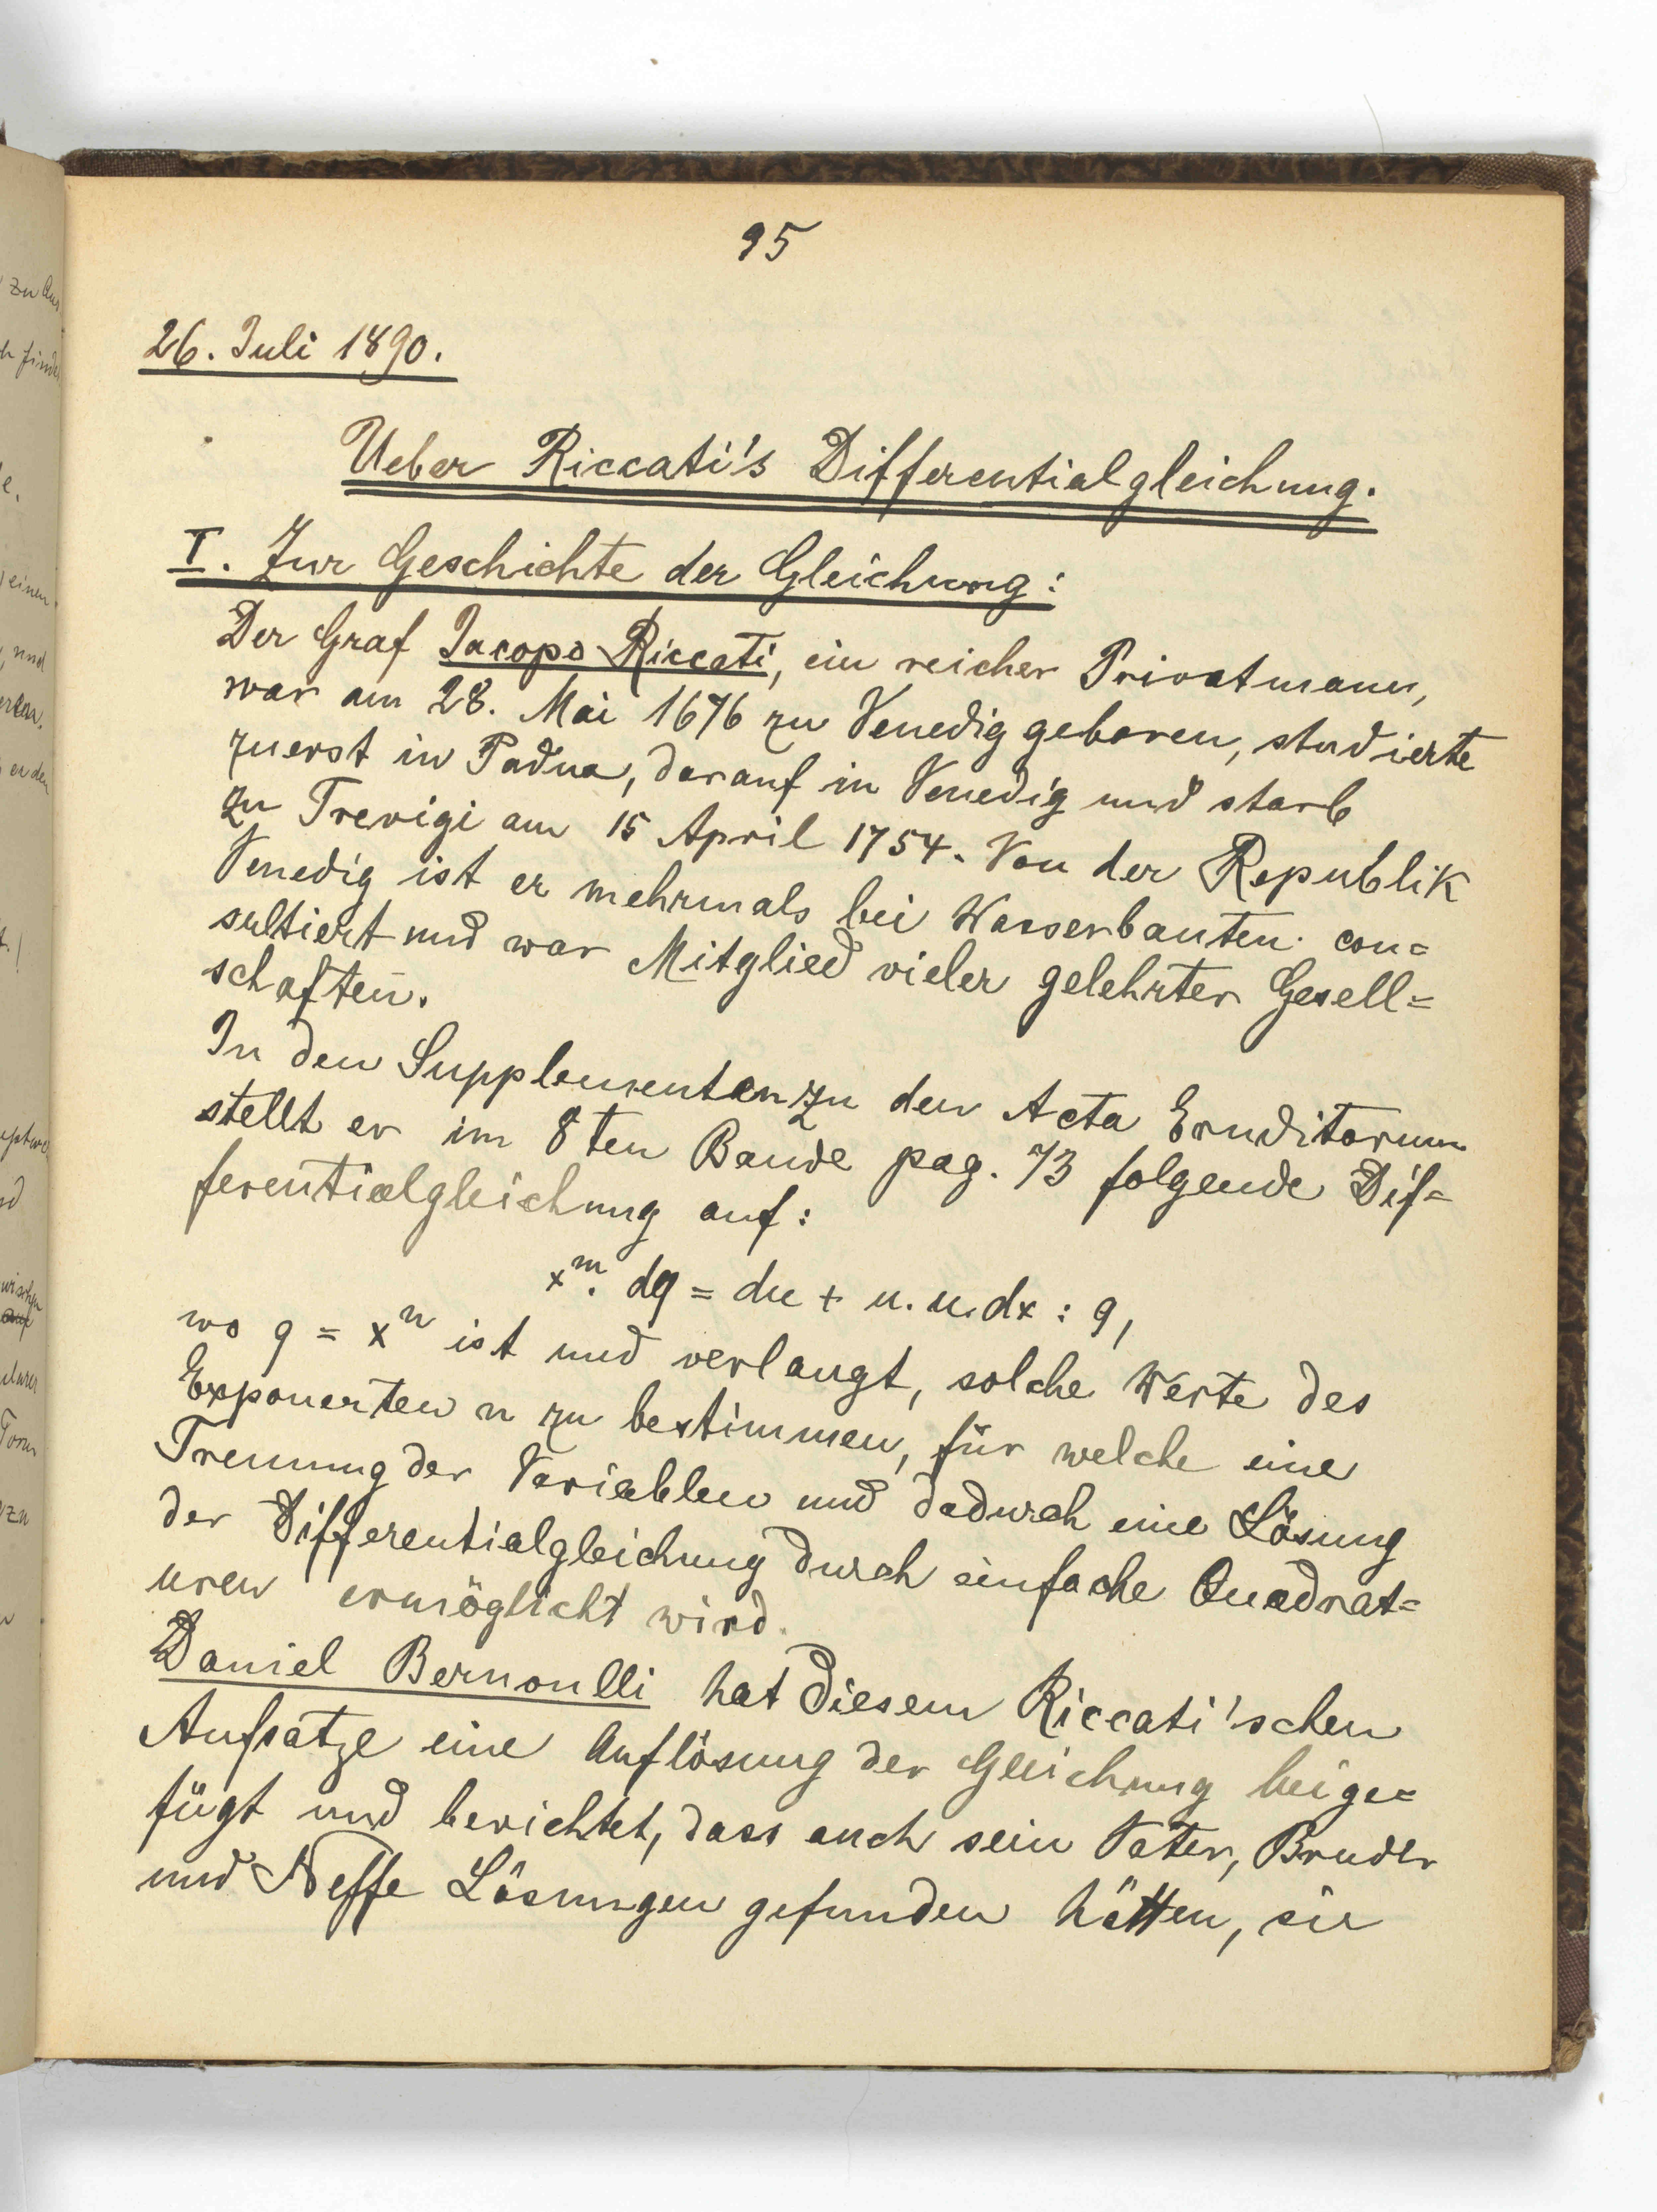 95
26. Juli 1890.
Ueber Riccati's Differentialgleichung.
I. Zur Geschichte der Gleichung:
Der Graf Jacopo Riccati, ein reicher Privatmann,
war am 28. Mai 1676 zu Venedig geboren, studierte
zuerst in Padua, darauf in Venedig und starb
zu Trevigi am 15 April 1754. Von der Republik
Venedig ist er mehrmals bei Wasserbauten con=
sultiert und war Mitglied vieler gelehrter Gesell=
schaften.
In den Supplementen zu den Acta Eruditorum
stellt er im 8ten Bande pag. 73 folgende Dif=
ferentialgleichung auf:
x^m. dq = du + u. u. dx : q,
wo q = x^n ist und verlangt, solche Werte des
Exponenten n zu bestimmen, für welche eine
Trennung der Variablen und dadurch eine Lösung
der Differentialgleichung durch einfache Quadrat=
uren ermöglicht wird.
Daniel Bernoulli hat diesem Riccati'schen
Aufsatze eine Auflösung der Gleichung beige=
fügt und berichtet, dass auch sein Vater, Bruder
und Neffe Lösungen gefunden hätten, sie
zu
finde
e.
einen
und